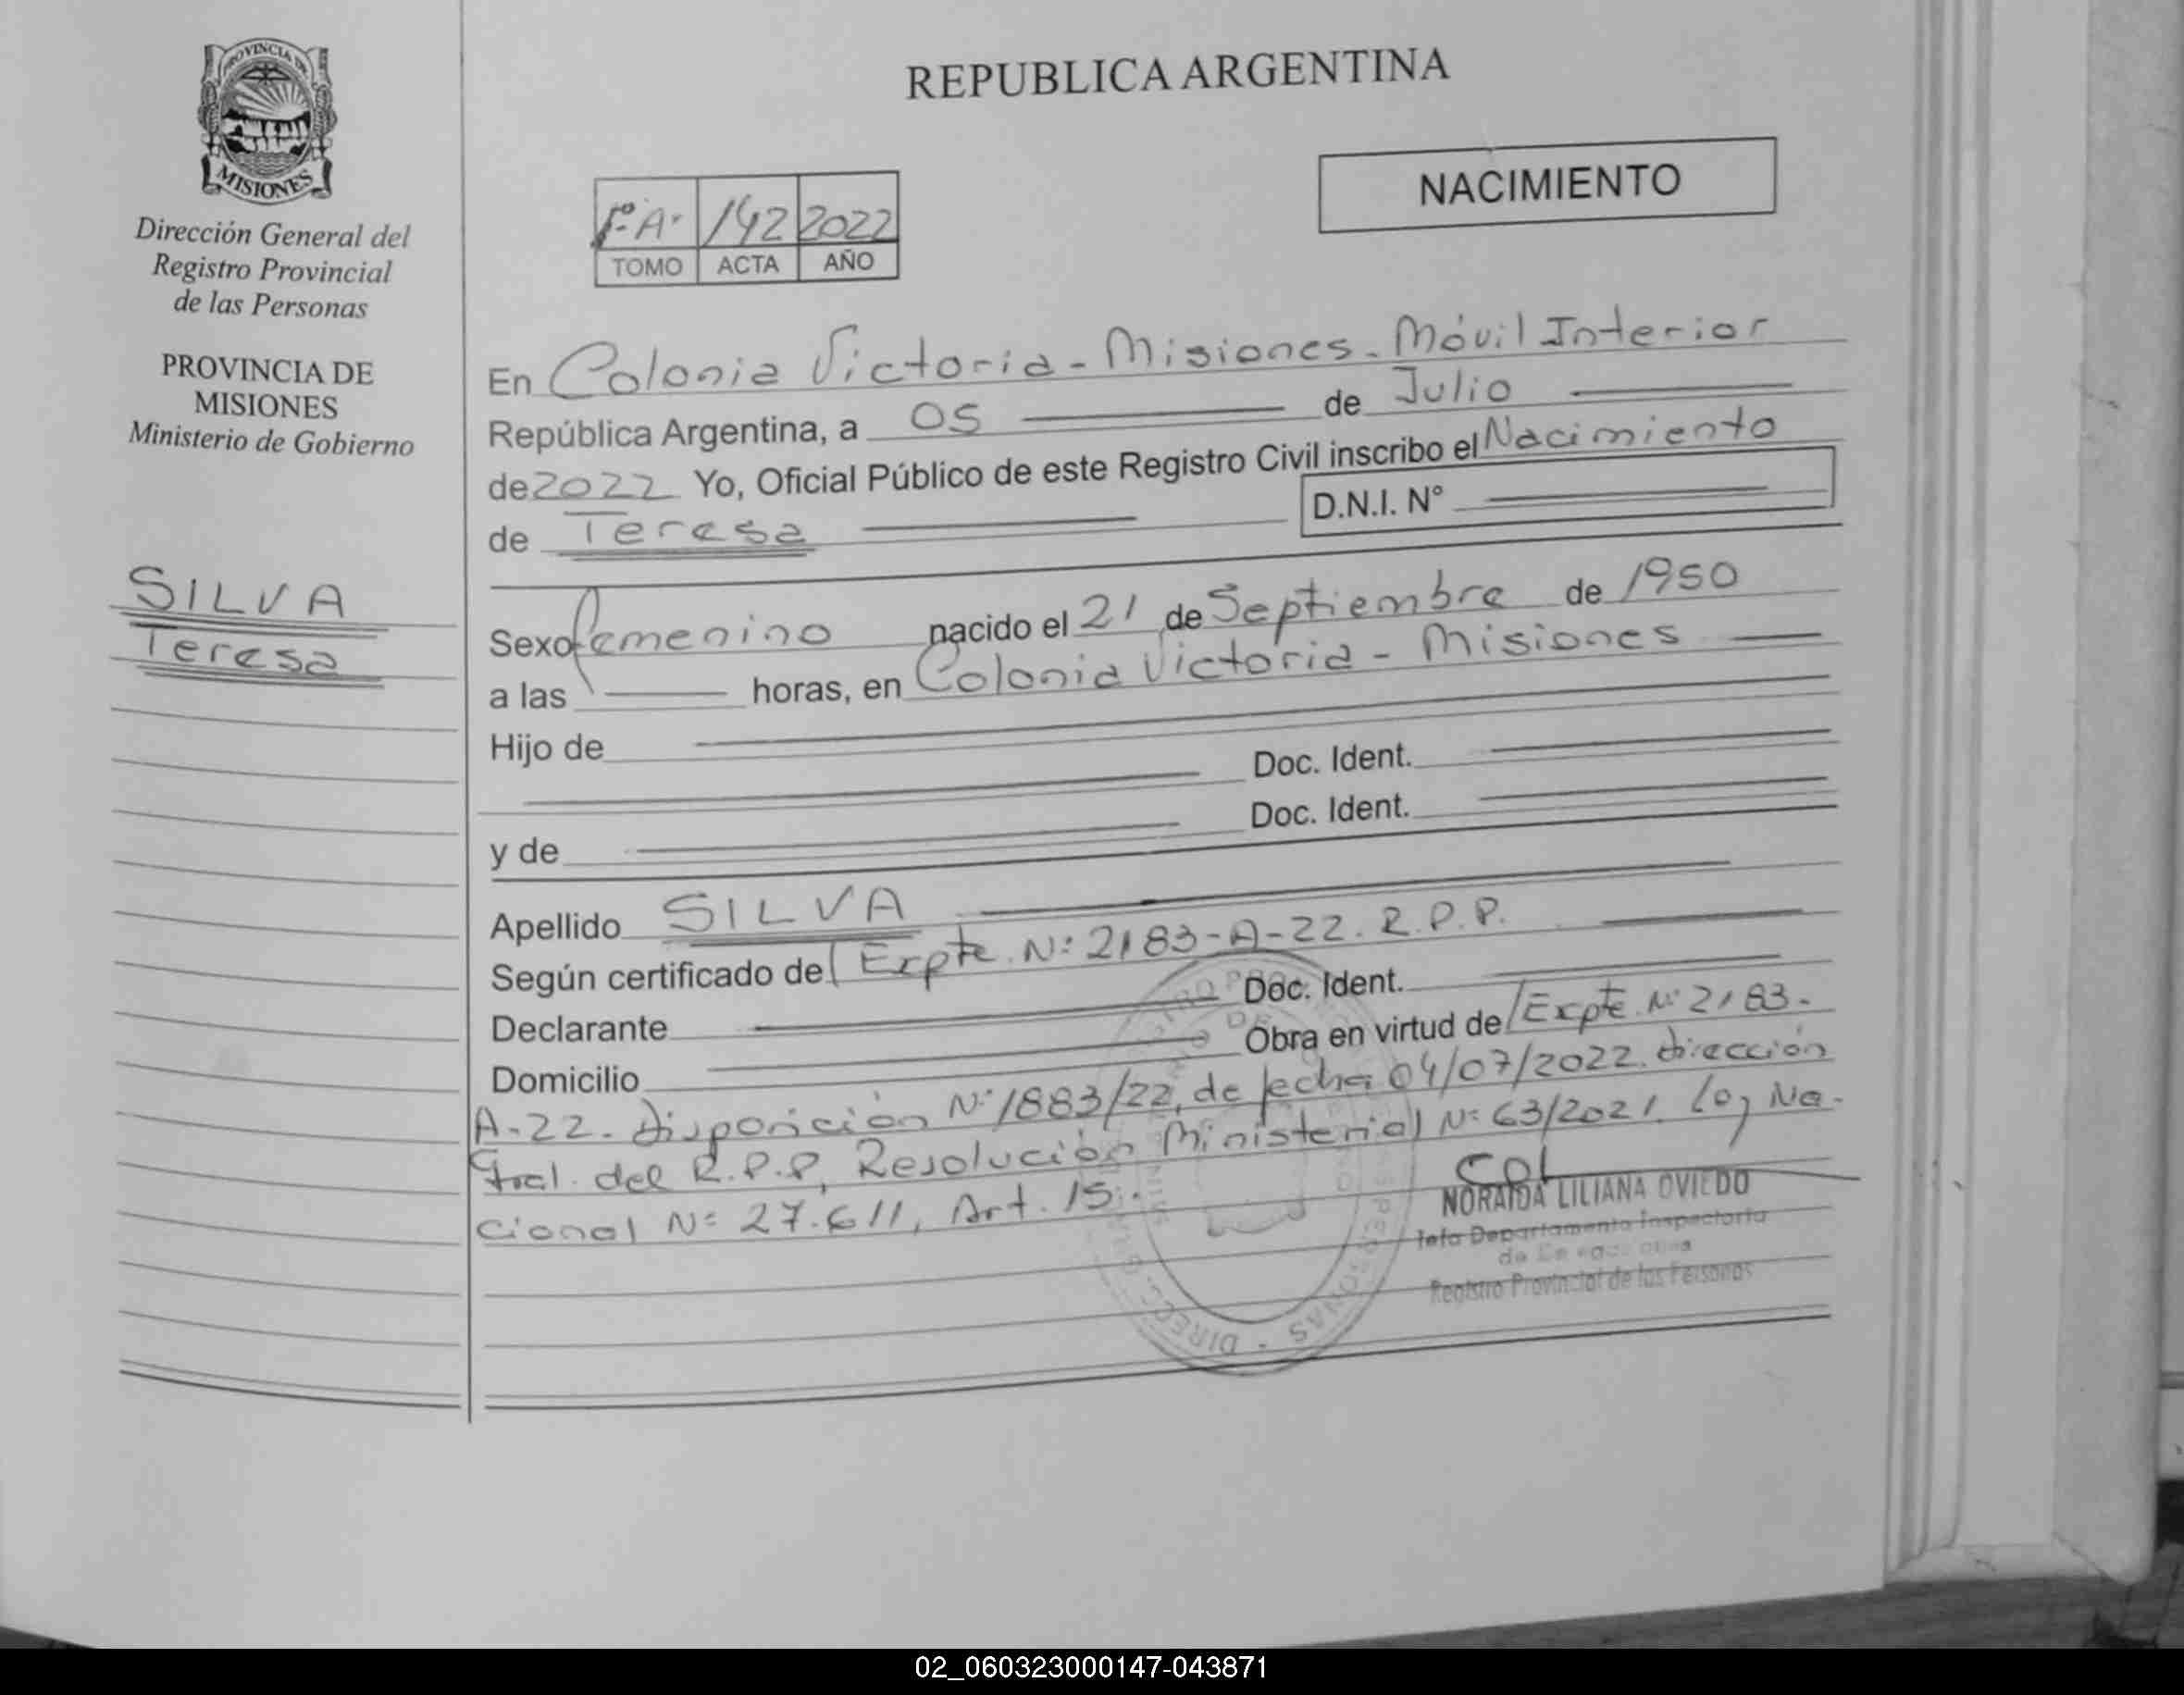 PROVINCIA DE
MISIONES
Dirección General del
Registro Provincial
de las Personas
PROVINCIA DE
MISIONES
Ministerio de Gobierno
SILVA
Teresa
REPUBLICA ARGENTINA
NACIMIENTO
1º A. 142 2022
TOMO ACTA AÑO
En Colonia Victoria - Misiones - Móvil Interior
República Argentina, a 05 de Julio
de 2022 Yo, Oficial Público de este Registro Civil inscribo el Nacimiento
de Teresa D.N.I. N°
Sexo femenino nacido el 21 de Septiembre de 1950
a las horas, en Colonia Victoria - Misiones
Hijo de
Doc. Ident.
y de Doc. Ident.
Apellido SILVA
Según certificado de Expte. Nº 2183-A-22. R.P.P.
Declarante Doc. Ident.
Domicilio Obra en virtud de Expte. Nº 2183-
A-22. Disposición Nº 1883/22, de fecha 04/07/2022. Dirección
Gral. del R.P.P, Resolución Ministerial Nº 63/2021. Ley Na-
cional Nº 27.611, Art. 15.-
NORAIDA LILIANA OVIEDO
Jefa Departamento Inspectoría
Registro Provincial de las Personas
02_060323000147-043871